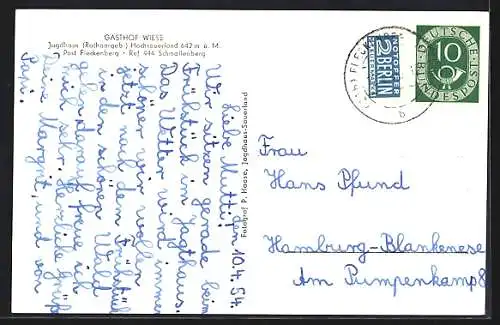 GASTHOF WIESE
Jagdhaus (Rothaargeb.) Hochsauerland 642 m ü. M.
Post Fleckenberg - Ruf 444 Schmallenberg
den 10.4.54.
Liebe Mutti!
Wir sitzen gerade beim
Frühstück in Jagdhaus.
Das Wetter wird immer
schöner, wir wollen
jetzt nach dem Frühstück
in den schönen Wald
gehn darauf freue ich
mich sehr. Herzliche Grüße
Deine Margrit, und von
Papi.
Fotograf P. Haase, Jagdhaus-Sauerland
NOTOPFER
2 BERLIN
STEUERMARKE
DEUTSCHE
BUNDESPOST
10
b
Frau
Hans Pfund
Hamburg-Blankenese
Am Pumpenkamp 8